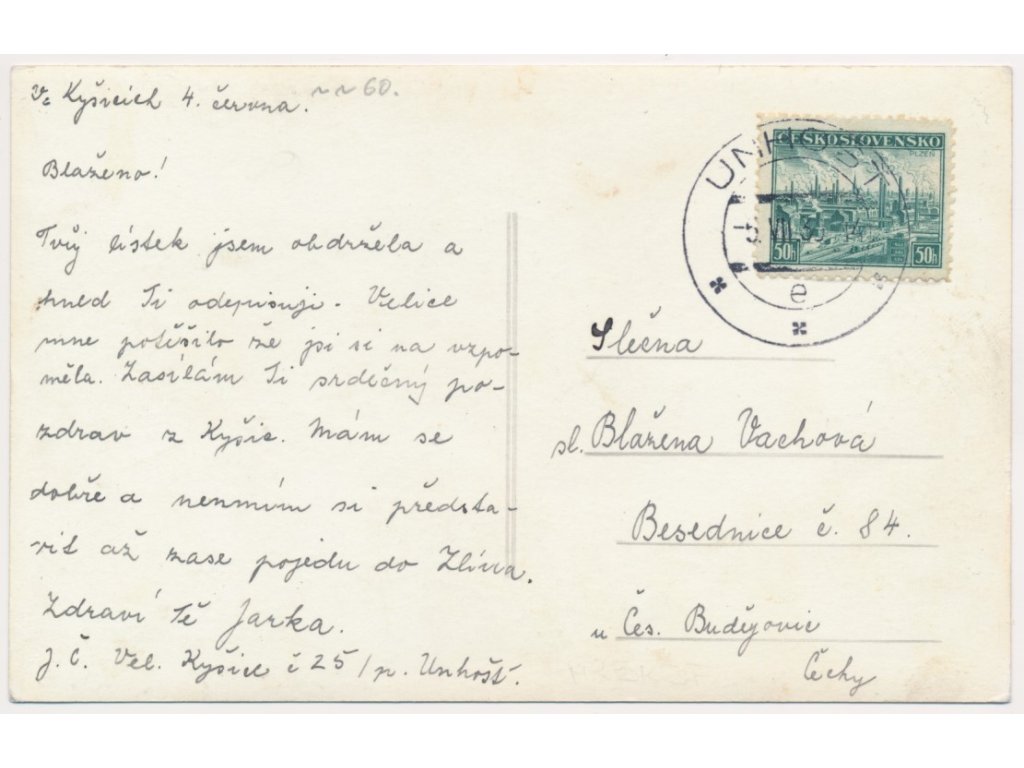 V. Kyšicích 4. června.
60.
Blaženo!
Tvůj lístek jsem obdržela a
hned Ti odepisuji. Velice
mne potěšilo že jsi si na vzpo-
měla. Zasílám Ti srdečný po-
zdrav z Kyšic. Mám se
dobře a neumím si předsta-
vit až zase pojedu do Zlína.
Zdraví Tě Jarka.
J. Č. Vel. Kyšice č 25 / p. Unhošť.
ČESKOSLOVENSKO
PLZEŇ
50h 50h
UNHOŠŤ
VII. 14
e
Slečna
sl. Blažena Vachová
Besednice č. 84.
u Čes. Budějovic
Čechy